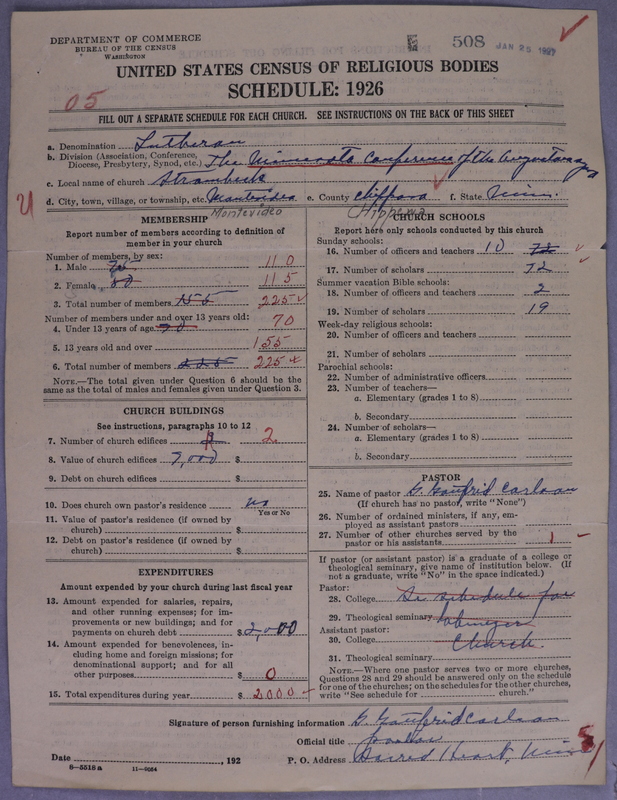 DEPARTMENT OF COMMERCE
BUREAU OF THE CENSUS
WASHINGTON
508 JAN 25 1927
UNITED STATES CENSUS OF RELIGIOUS BODIES
SCHEDULE: 1926
05
FILL OUT A SEPARATE SCHEDULE FOR EACH CHURCH. SEE INSTRUCTIONS ON THE BACK OF THIS SHEET
a. Denomination Lutheran
b. Division (Association, Conference, Diocese, Presbytery, Synod, etc.) The Minnesota Conference of the Augustana
c. Local name of church
d. City, town, village, or township, etc. Montevideo e. County Chippewa f. State Minn.
Montevideo Chippewa
MEMBERSHIP
Report number of members according to definition of
member in your church
Number of members, by sex:
1. Male 75 110
2. Female 80 115
3. Total number of members 155 225
Number of members under and over 13 years old:
4. Under 13 years of age 70 70
5. 13 years old and over 155
6. Total number of members 225 225
NOTE.—The total given under Question 6 should be the
same as the total of males and females given under Question 3.
CHURCH BUILDINGS
See instructions, paragraphs 10 to 12
7. Number of church edifices 2
8. Value of church edifices 7,000 $
9. Debt on church edifices $
10. Does church own pastor's residence no
Yes or No
11. Value of pastor's residence (if owned by
church) $
12. Debt on pastor's residence (if owned by
church) $
EXPENDITURES
Amount expended by your church during last fiscal year
13. Amount expended for salaries, repairs,
and other running expenses; for im-
provements or new buildings; and for
payments on church debt $2,000
14. Amount expended for benevolences, in-
cluding home and foreign missions; for
denominational support; and for all
other purposes $ 0
15. Total expenditures during year $2000
CHURCH SCHOOLS
Report here only schools conducted by this church
Sunday schools:
16. Number of officers and teachers 10 72
17. Number of scholars 72
Summer vacation Bible schools:
18. Number of officers and teachers 2
19. Number of scholars 19
Week-day religious schools:
20. Number of officers and teachers
21. Number of scholars
Parochial schools:
22. Number of administrative officers
23. Number of teachers—
a. Elementary (grades 1 to 8)
b. Secondary
24. Number of scholars—
a. Elementary (grades 1 to 8)
b. Secondary
PASTOR
25. Name of pastor G. Gottfrid Carlson
(If church has no pastor, write "None")
26. Number of ordained ministers, if any, em-
ployed as assistant pastors
27. Number of other churches served by the
pastor or his assistants 1
If pastor (or assistant pastor) is a graduate of a college or
theological seminary, give name of institution below. (If
not a graduate, write "No" in the space indicated.)
Pastor:
28. College Se schedule for
29. Theological seminary Ebenezer
Assistant pastor: Church.
30. College
31. Theological seminary
NOTE.—Where one pastor serves two or more churches,
Questions 28 and 29 should be answered only on the schedule
for one of the churches; on the schedules for the other churches,
write "See schedule for church."
Signature of person furnishing information G. Gottfrid Carlson
Official title pastor
Date , 192 P. O. Address Sacred Heart, Minn
8—5518 a 11—9064